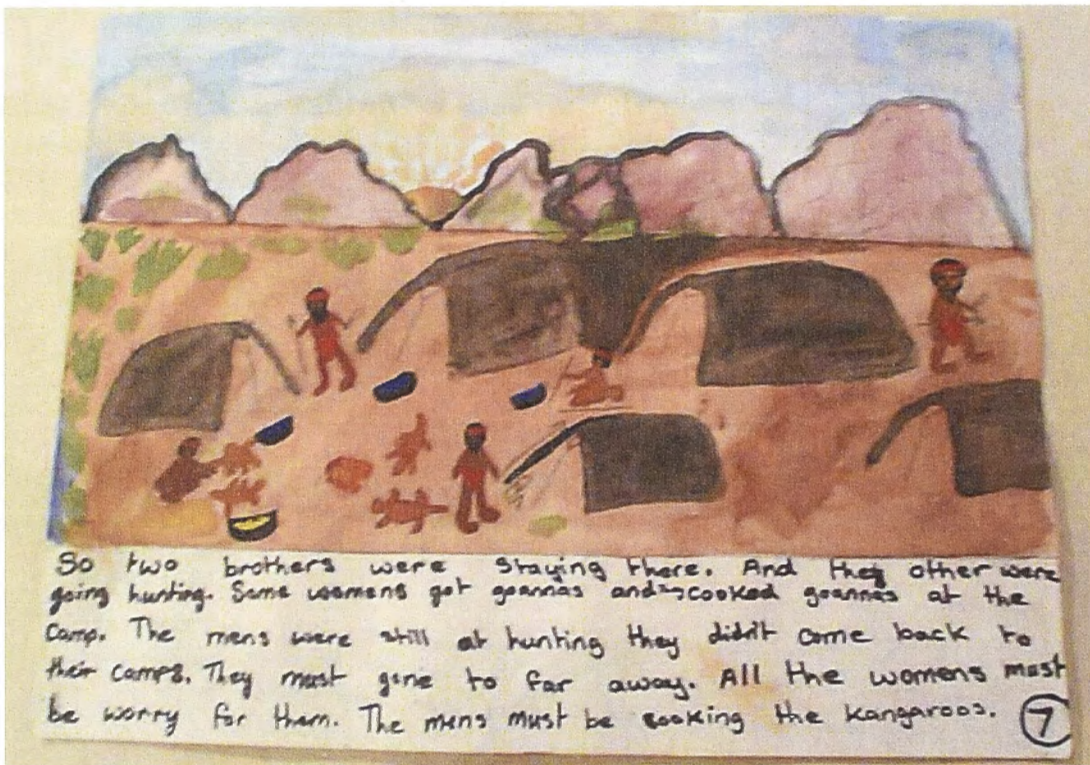 So two brothers were staying there. And they other were
going hunting. Some womens got goannas and cooked goannas at the
camp. The mens were still at hunting they didn't come back to
their camps. They must gone to far away. All the womens must
be worry for them. The mens must be cooking the kangaroos. 7